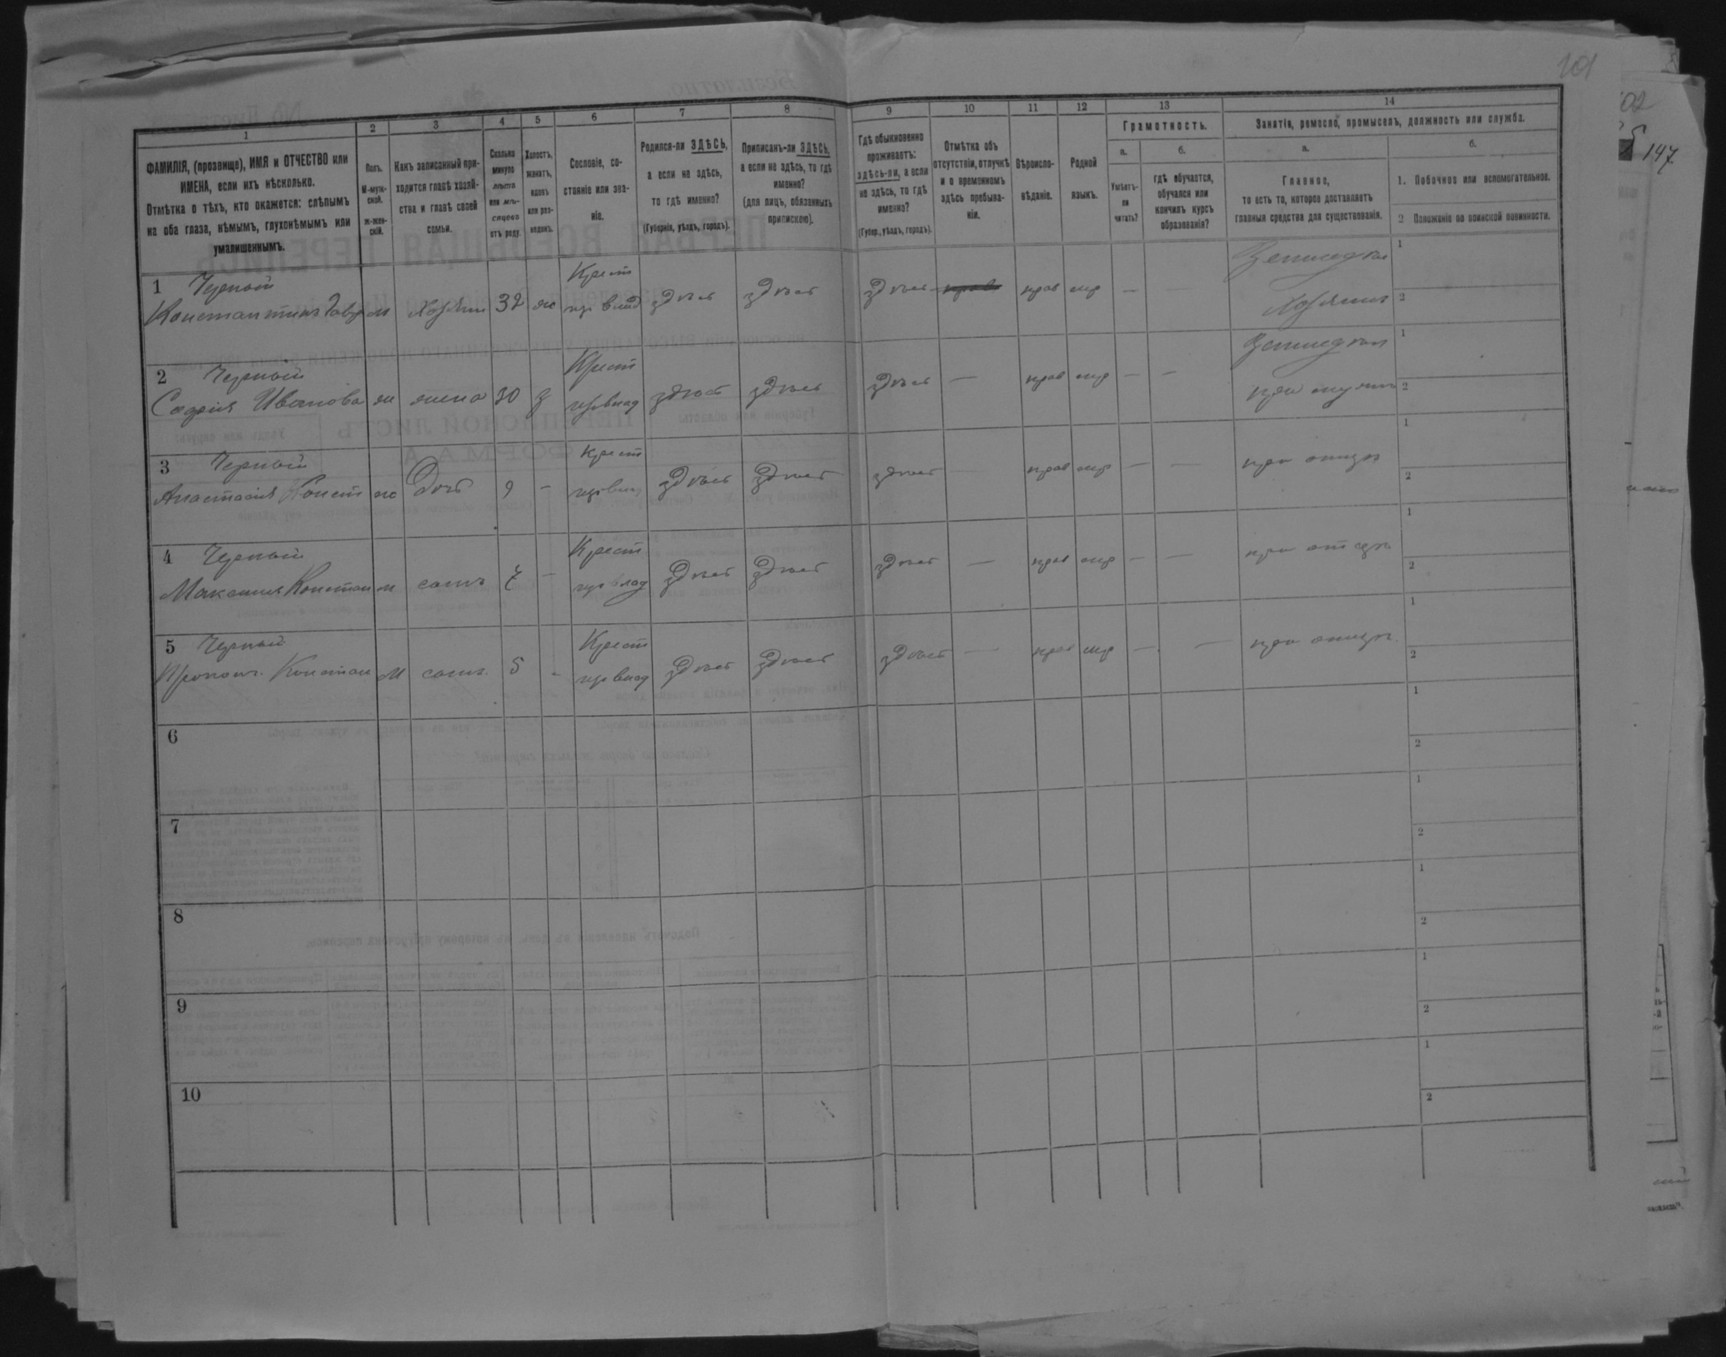 101
147
1 2 3 4 5 6 7 8 9 10 11 12 13 14
ФАМИЛІЯ, (прозвище), ИМЯ и ОТЧЕСТВО или ИМЕНА, если ихъ нѣсколько.
Отмѣтка о тѣхъ, кто окажется: слѣпымъ на оба глаза, нѣмымъ, глухонѣмымъ или умалишеннымъ.
Полъ.
М-мужской.
Ж-женскій.
Какъ записанный приходится главѣ хозяйства и главѣ своей семьи.
Сколько минуло лѣтъ или мѣсяцевъ отъ роду.
Холостъ, женатъ, вдовъ или разведенъ.
Сословіе, состояніе или званіе.
Родился-ли ЗДѢСЬ, а если не здѣсь, то гдѣ именно?
(Губернія, уѣздъ, городъ).
Приписанъ-ли ЗДѢСЬ, а если не здѣсь, то гдѣ именно?
(для лицъ, обязанныхъ припиской).
Гдѣ обыкновенно проживаетъ: здѣсь-ли, а если не здѣсь, то гдѣ именно?
(Губер., уѣздъ, городъ).
Отмѣтка объ отсутствіи, отлучкѣ и о временномъ здѣсь пребываніи.
Вѣроисповѣданіе.
Родной языкъ.
Грамотность.
а.
Умѣетъ-ли читать?
б.
гдѣ обучается, обучался или кончилъ курсъ образованія?
Занятіе, ремесло, промыселъ, должность или служба.
а.
Главное,
то есть то, которое доставляетъ главныя средства для существованія.
б.
1. Побочное или вспомогательное.
2 Положеніе по воинской повинности.
1 Черный Крест Земледѣл 1
Константинъ Давид м хозяин 32 ж здѣсь здѣсь здѣсь прав мр — — Хозяинъ 2
2 Черный Крест Земледѣл 1
Софія Иванова ж жена 30 з здѣсь здѣсь здѣсь — прав мр — — при мужѣ 2
3 Черный Крест 1
Анастасія Конст ж Дочь 9 — здѣсь здѣсь здѣсь прав мр — — при отцѣ 2
4 Черный Крест 1
Максимъ Констан м сынъ 7 — здѣсь здѣсь здѣсь — прав мр — — при отцѣ 2
5 Черный Крест 1
Прокоп. Констан м сынъ 5 - здѣсь здѣсь здѣсь — прав мр — — при отцѣ 2
6 1
2
7 1
2
8 1
2
9 1
2
10 1
2